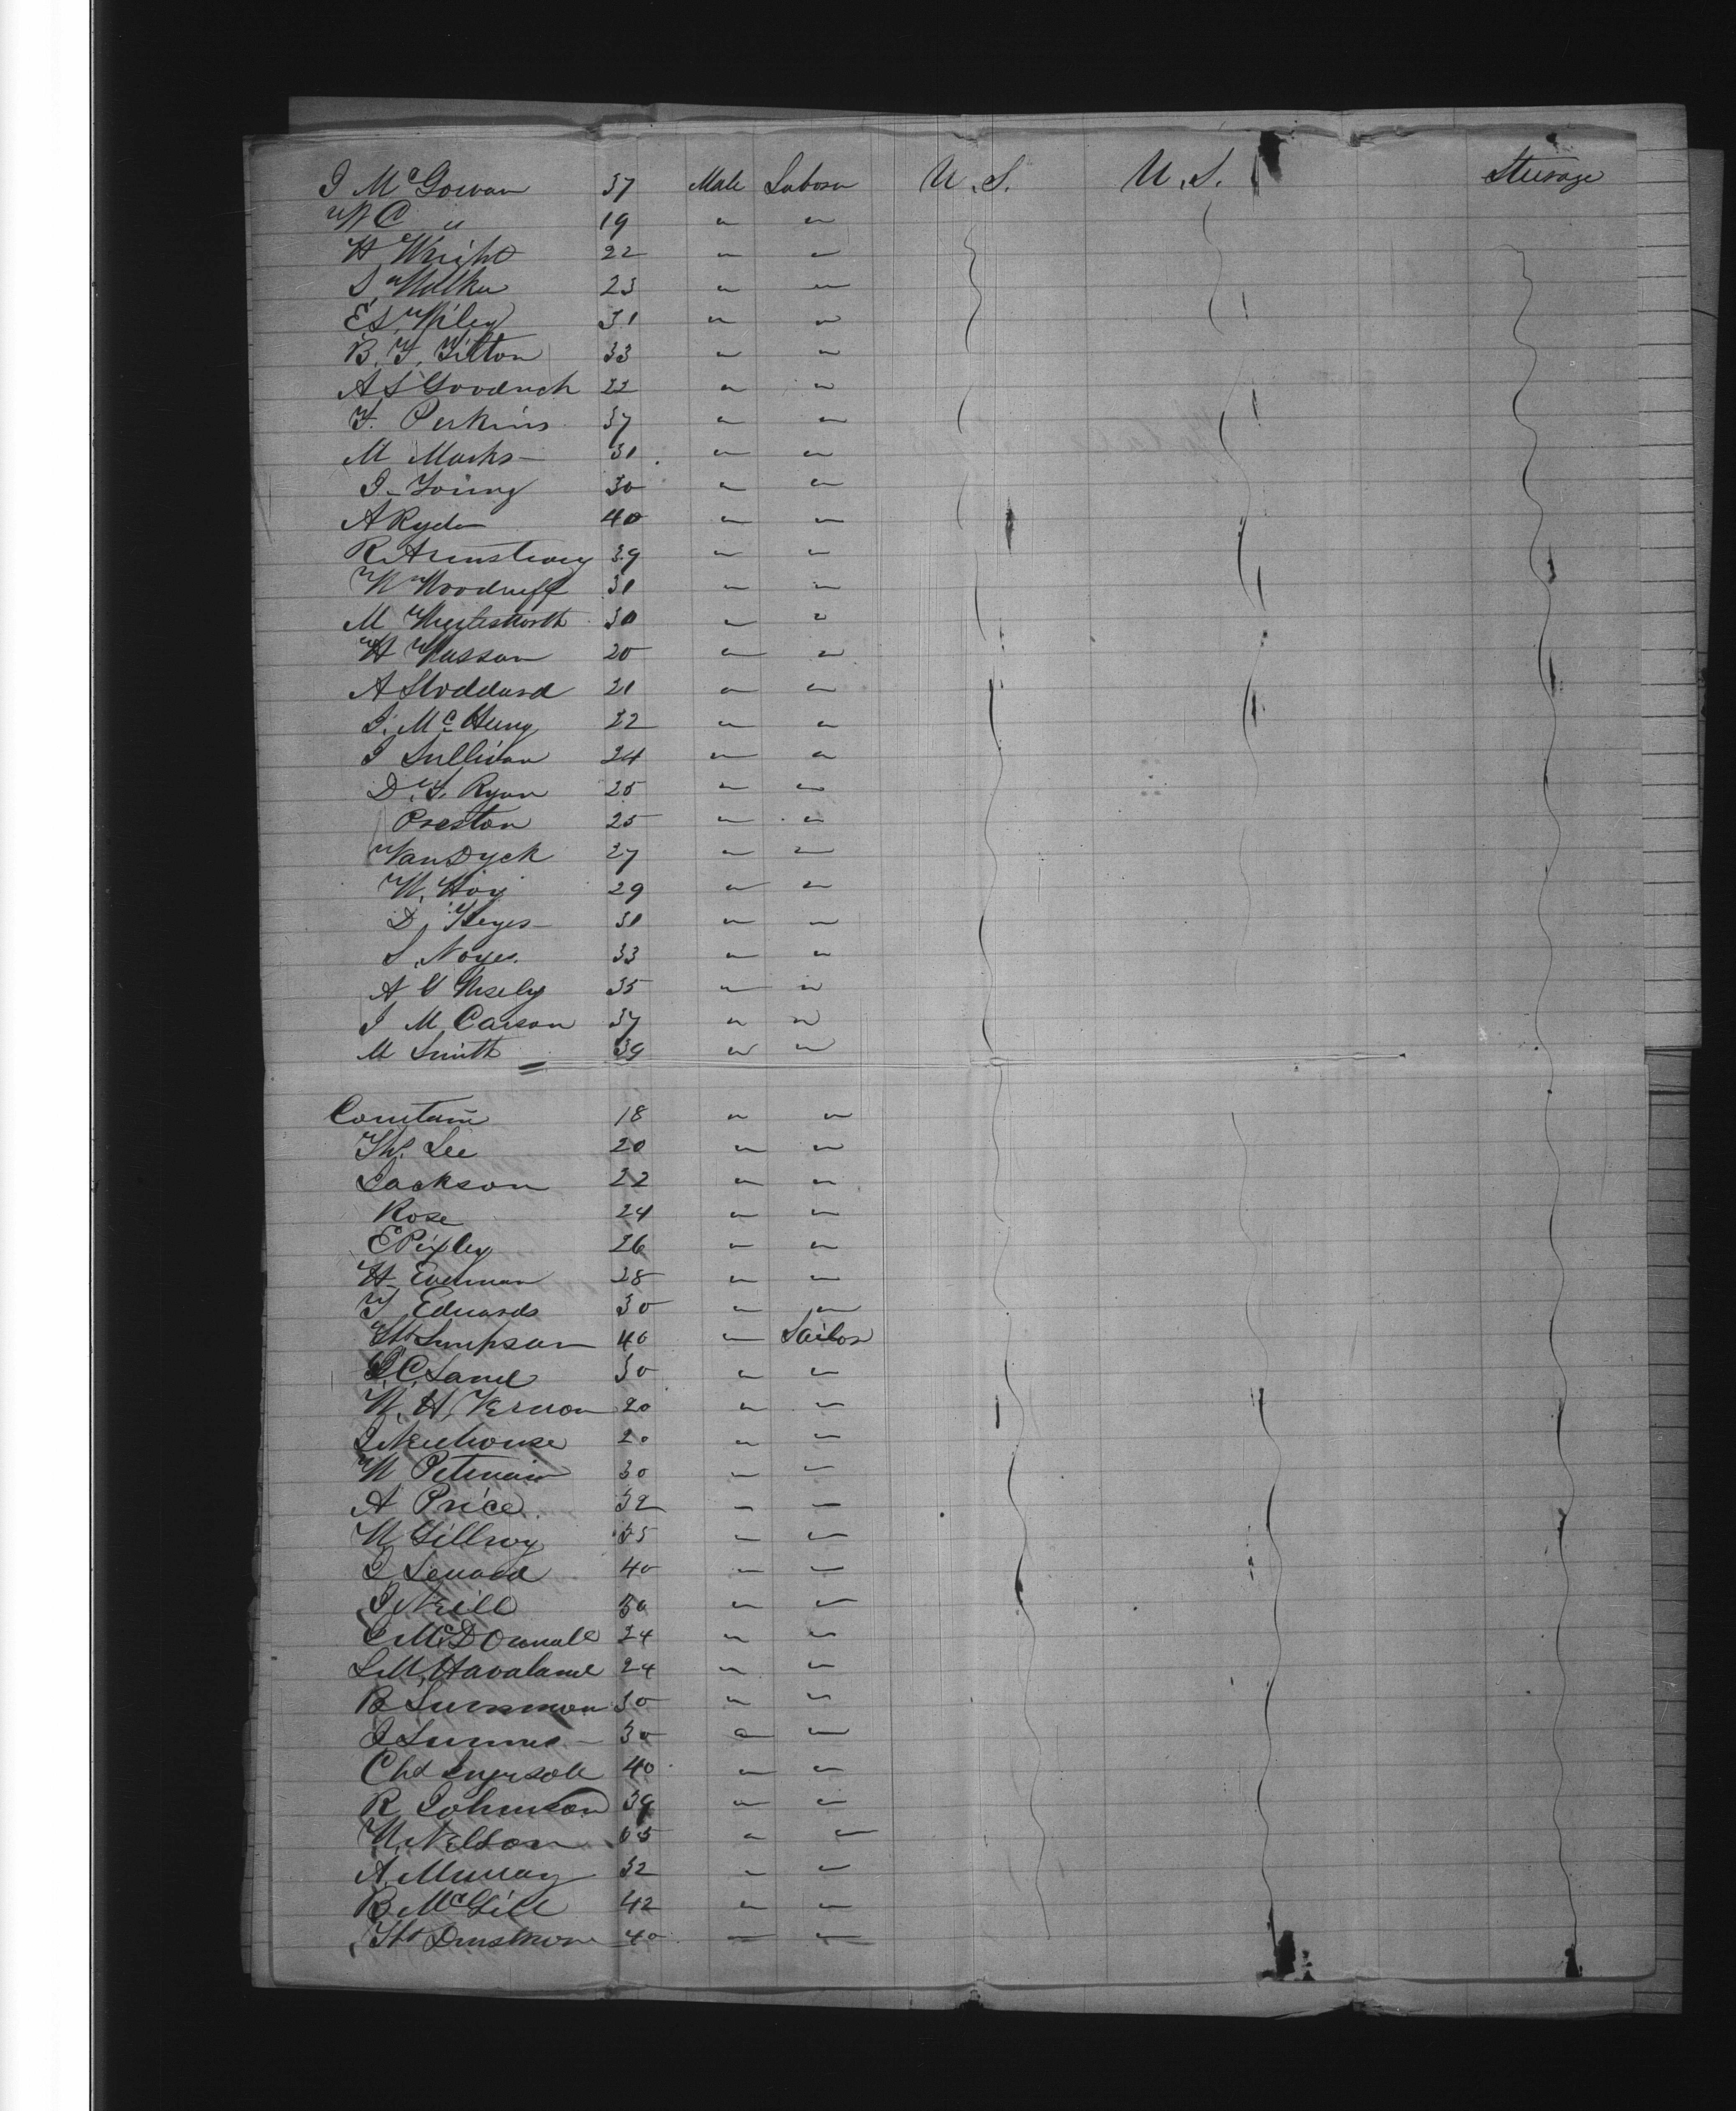 J McGowan 37 Male Labor U.S. U.S. Steerage
W C " 19 " "
H Wright 22 " "
S Walker 23 " "
E.S. Wiley 31 " "
B. F. Tilton 33 " "
A S Goodrich 22 " "
F. Perkins 37 " "
M Marks 31 " "
J. Young 30 " "
A Ryder 40 " "
R. Armstrong 39 " "
W Woodruff 31 " "
M Wigglesworth 30 " "
H Wasson 20 " "
A Stoddard 21 " "
J. Mc Hung 22 " "
J Sullivan 24 " "
D. F. Ryan 25 " "
Preston 25 " "
Van Dyck 27 " "
W. Hoy 29 " "
D. Keyes 31 " "
S. Noyes. 33 " "
A 35 " "
J M Carson 37 " "
M Smith 39 " "
18 " "
Th. Lee 20 " "
Jackson 22 " "
Rose 24 " "
E Pixley 26 " "
H. 28 " "
F Edwards 30 " "
Simpson 40 " Sailor
C. 30 " "
W. H. Vernon 20 " "
J Newhouse 20 " "
W 30 " "
A Price. 32 " "
W Gillroy 35 " "
J Lenard 40 " "
J Neill 50 " "
McDonnald 24 " "
Havaland 24 " "
30 " "
J 30 " "
Chs Ingersoll 40 " "
R Johnson 39 " "
W. Nelson " "
A. Murray 32 " "
B. McGill 42 " "
40 " "